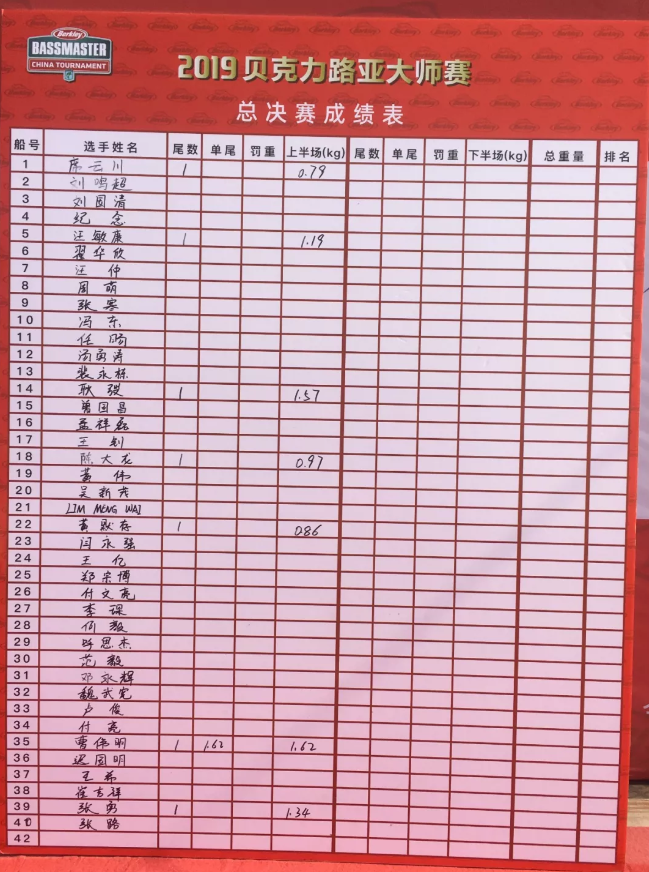 Berkley
BASSMASTER
CHINA TOURNAMENT
2019贝克力路亚大师赛
总决赛成绩表
船号 选手姓名 尾数 单尾 罚重 上半场(kg) 尾数 单尾 罚重 下半场(kg) 总重量 排名
1 席云川 1 0.79
2 刘鸣超
3 刘国清
4 纪念
5 汪敏康 1 1.19
6 翟华欣
7 汪仲
8 周萌
9 张寒
10 冯东
11 任飏
12 汤勇涛
13 裴永栋
14 耿强 1 1.57
15 曾国昌
16 孟祥磊
17 王钊
18 陈大龙 1 0.97
19 黄伟
20 吴新茂
21 LIM MENG WAI
22 黄耿存 1 0.86
23 闫永强
24 王亿
25 郑宗博
26 付文亮
27 李琛
28 何毅
29 思杰
30 范毅
31 邓永辉
32 魏武宪
33 卢俊
34 付亮
35 曹伟明 1 1.62 1.62
36 国明
37 王弟
38 崔吉祥
39 张勇 1 1.34
40 张路
42